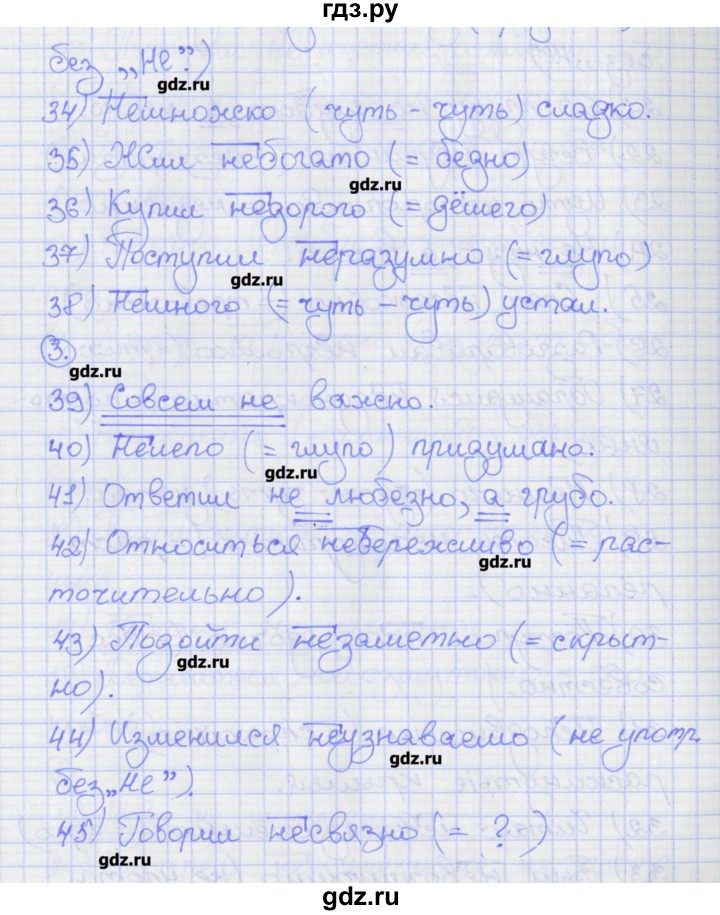 гдз.ру
без „Не”)
gdz.ru
34) Немножко (чуть-чуть) сладко.
35) Жил небогато (= бедно)
gdz.ru
36) Купил недорого (= дёшего)
37) Поступил неразумно (= глупо)
gdz.ru
38) Немного (= чуть-чуть) устал.
3.
gdz.ru
39) Совсем не важно.
40) Нелепо (= глупо) придумано.
gdz.ru
41) Ответил не любезно, а грубо.
42) Относиться небережливо (= рас-
gdz.ru
точительно).
43) Подойти незаметно (= скрыт-
gdz.ru
но).
44) Изменился неузнаваемо (не употр.
gdz.ru
без „не”).
45) Говорил несвязно (= ?)
gdz.ru
gdz.ru